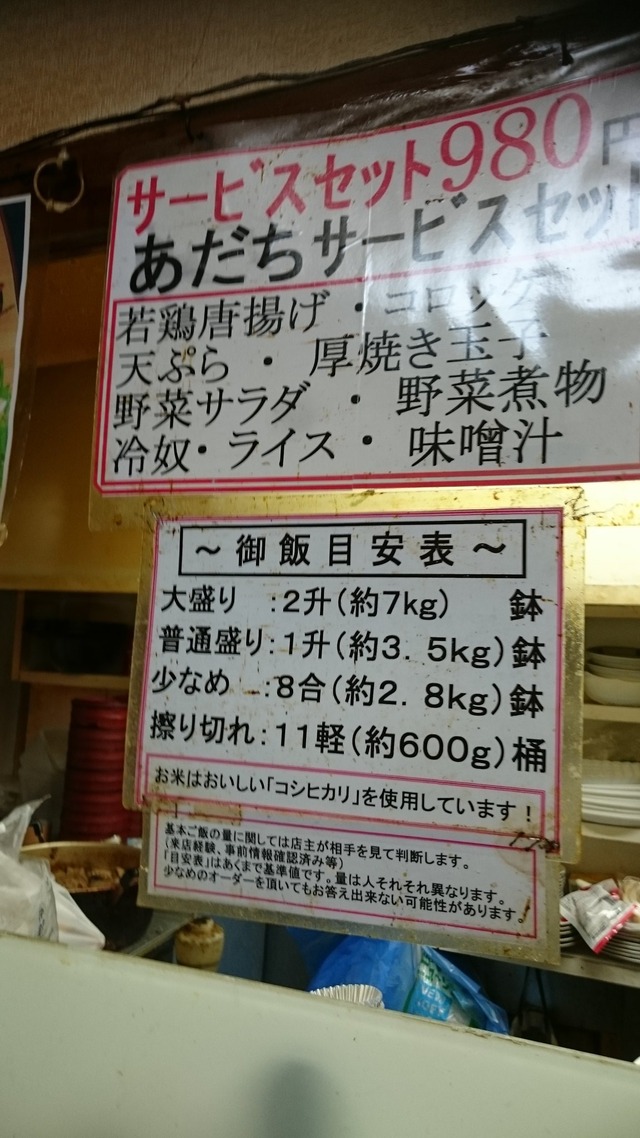 サービスセット980円
あだちサービスセット
若鶏唐揚げ・コロッケ
天ぷら・厚焼き玉子
野菜サラダ・野菜煮物
冷奴・ライス・味噌汁
～御飯目安表～
大盛り:2升(約7kg) 鉢
普通盛り:1升(約3.5kg)鉢
少なめ:8合(約2.8kg)鉢
擦り切れ:11軽(約600g)桶
お米はおいしい「コシヒカリ」を使用しています!
基本ご飯の量に関しては店主が相手を見て判断します。
(来店経験、事前情報確認済み等)
「目安表」はあくまで基準値です。量は人それぞれ異なります。
少なめのオーダーを頂いてもお答え出来ない可能性があります。